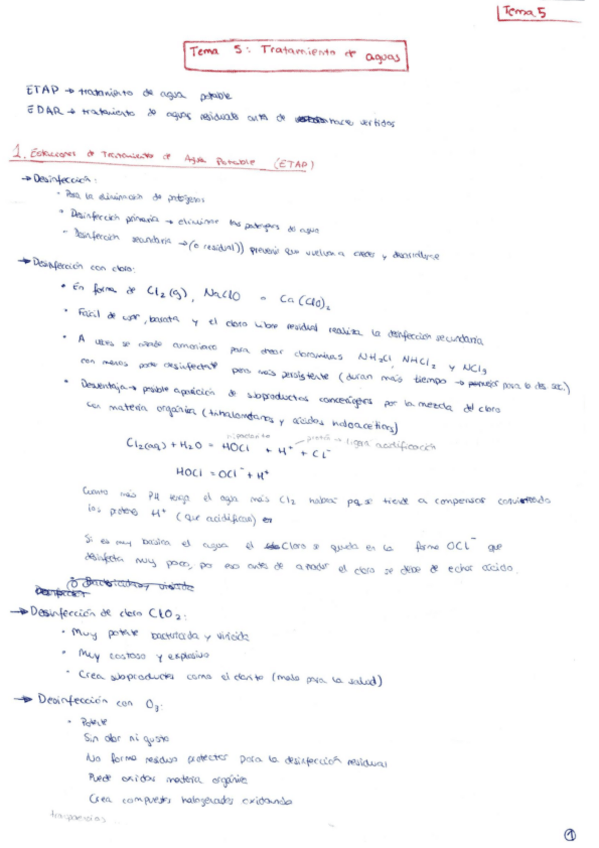 Tema 5
Tema 5: Tratamiento de aguas
ETAP → tratamiento de agua potable
EDAR → tratamiento de aguas residuales antes de hacer vertidos
1. Estaciones de Tratamiento de Agua Potable (ETAP)
→ Desinfección:
• Para la eliminación de patógenos
• Desinfección primaria → eliminar los patógenos del agua
- Desinfección secundaria → (o residual)) prevenir que vuelvan a crecer y desarrollarse
→ Desinfección con cloro:
• En forma de Cl₂(g), NaClO o Ca(ClO)₂
• Fácil de usar, barata y el cloro libre residual realiza la desinfección secundaria
• A veces se añade amoniaco para crear cloraminas NH₂Cl, NHCl₂ y NCl₃
con menos poder desinfectante pero más persistente (duran más tiempo → mejor para la des. sec.)
• Desventaja → posible aparición de subproductos cancerígenos por la mezcla del cloro
con materia orgánica (trihalometanos y ácidos haloacéticos)
hipoclorito protón → ligera acidificación
Cl₂(aq) + H₂O = HOCl + H⁺ + Cl⁻
HOCl = OCl⁻ + H⁺
Cuanto más pH tenga el agua más Cl₂ habrá pq se tiende a compensar
los protones H⁺ (que acidifican)
Si es muy básica el agua el Cloro se queda en la forma OCl⁻ que
desinfecta muy poco, por eso antes de añadir el cloro se debe de echar ácido.
→ Desinfección de cloro ClO₂:
• Muy potente bactericida y viricida
• Muy costoso y explosivo
• Crea subproductos como el clorito (malo para la salud)
→ Desinfección con O₃:
• Potente
Sin olor ni gusto
No forma residuo protector para la desinfección residual
Puede oxidar materia orgánica
Crea compuestos halogenados oxidando
1